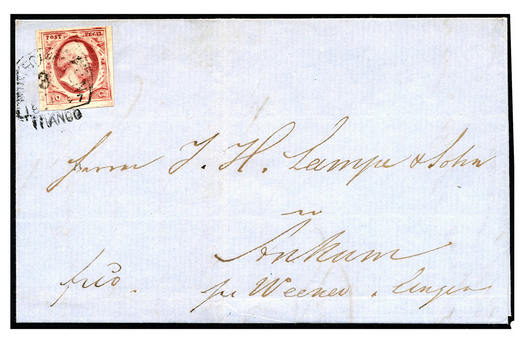 POST ZEGEL
10 C.
3
FRANCO
Herrn J. H. Lampe & Sohn
in
Ankum
frco. pr Weener & Lingen